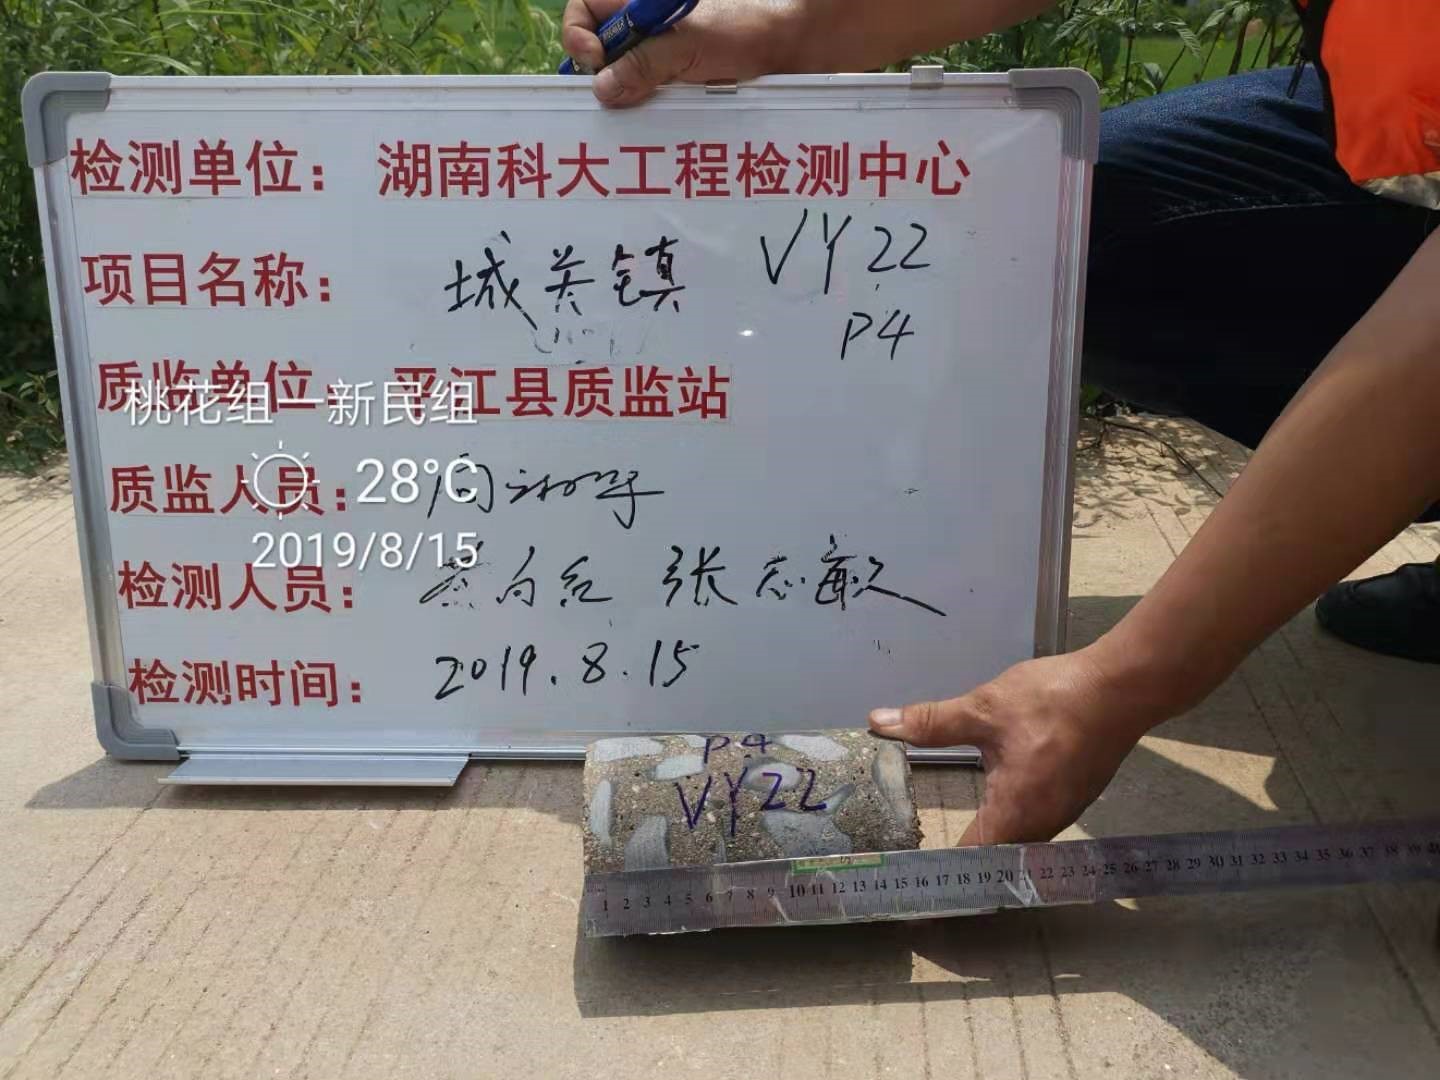 检测单位： 湖南科大工程检测中心
VY22
项目名称： 城关镇
P4
质监单位： 平江县质监站
桃花组一新民组
质监人员：
28℃
2019/8/15
检测人员： 张志敏
检测时间： 2019.8.15
P4
VY22
1 2 3 4 5 6 7 8 9 10 11 12 13 14 15 16 17 18 19 20 21 22 23 24 25 26 27 28 29 30 31 32 33 34 35 36 37 38 39 40